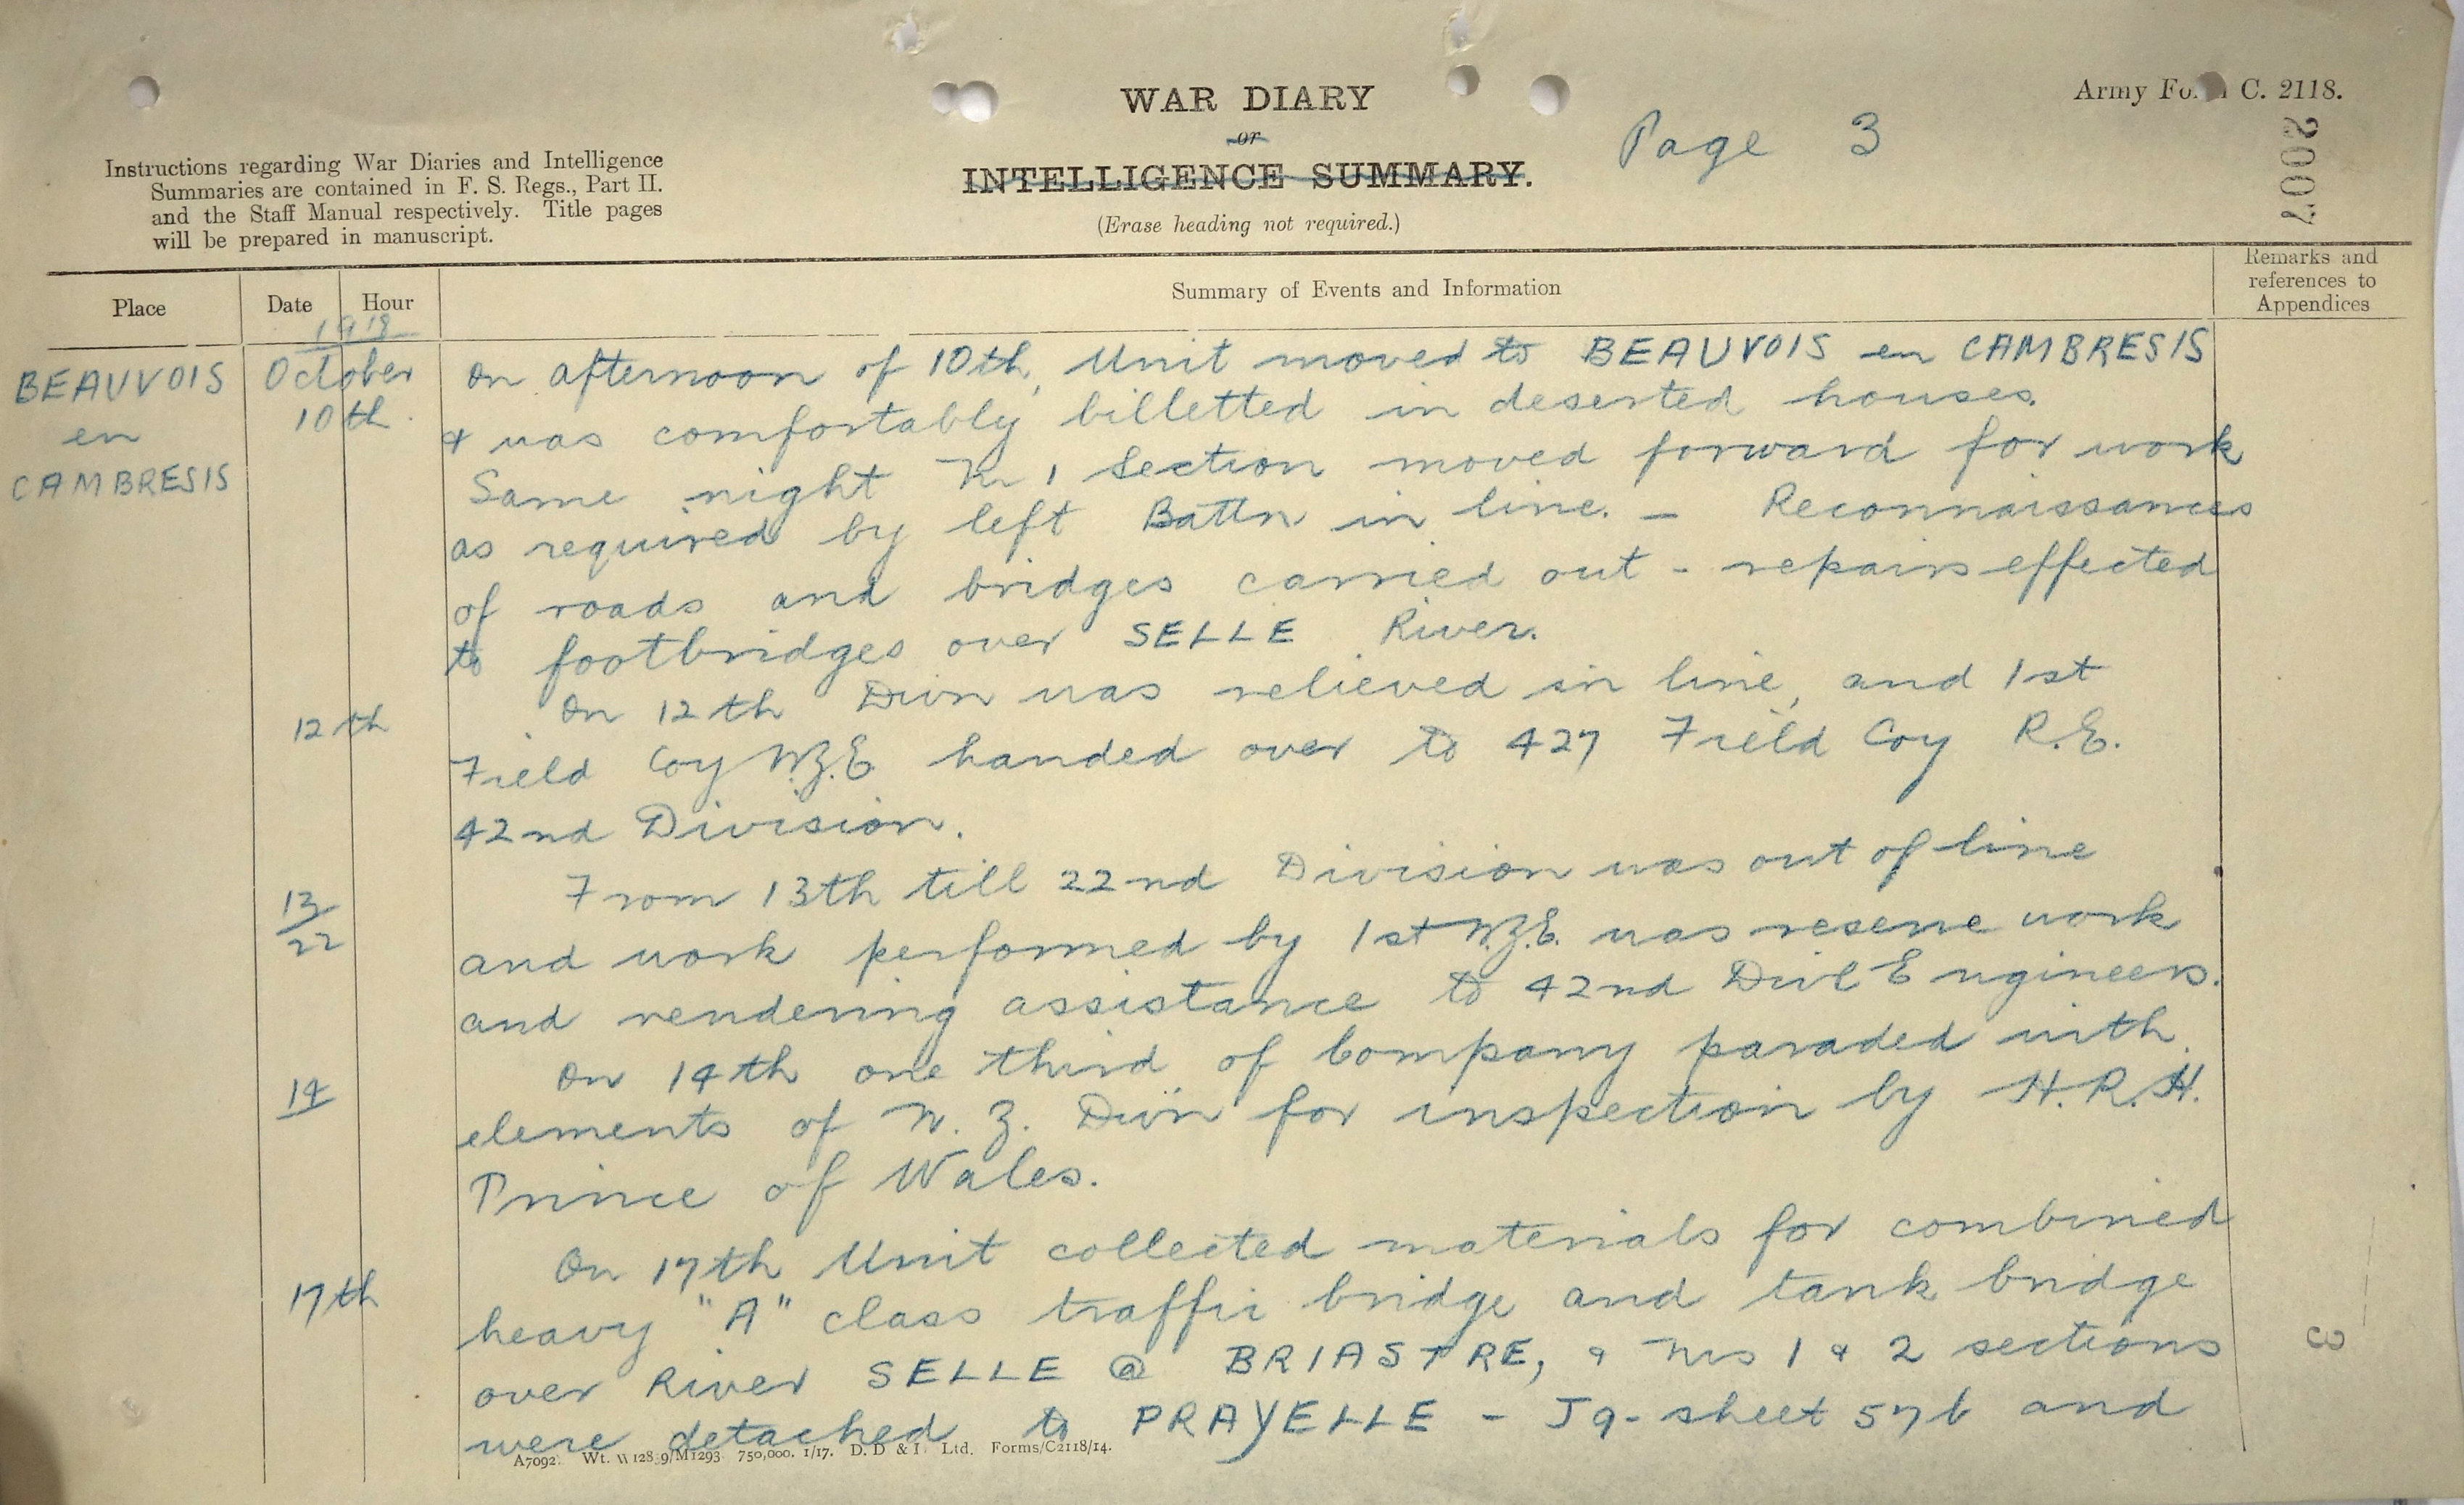 WAR DIARY
or
INTELLIGENCE SUMMARY.
(Erase heading not required.)
Page 3
Army Form C. 2118.
2007
Instructions regarding War Diaries and Intelligence
Summaries are contained in F. S. Regs., Part II.
and the Staff Manual respectively. Title pages
will be prepared in manuscript.
Place
Date
Hour
Summary of Events and Information
Remarks and
references to
Appendices
1918
BEAUVOIS
en
CAMBRESIS
October
10th
On afternoon of 10th, Unit moved to BEAUVOIS en CAMBRESIS
& was comfortably billetted in deserted houses.
Same night No 1 Section moved forward for work
as required by left Battn in line. - Reconnaissances
of roads and bridges carried out - repairs effected
to footbridges over SELLE River.
12th
On 12th Divn was relieved in line, and 1st
Field Coy N.Z.E. handed over to 427 Field Coy R.E.
42nd Division.
13/22
From 13th till 22nd Division was out of line
and work performed by 1st N.Z.E. was reserve work
and rendering assistance to 42nd Divl Engineers.
14
On 14th one third of Company paraded with
elements of N. Z. Divn for inspection by H.R.H.
Prince of Wales.
17th
On 17th Unit collected materials for combined
heavy "A" class traffic bridge and tank bridge
over River SELLE @ BRIASTRE, & Nos 1 & 2 sections
were detached to PRAYELLE - J9 - sheet 57b and
3
A7092. Wt. W1289/M1293 750,000. 1/17. D. D & L. Ltd. Forms/C2118/14.